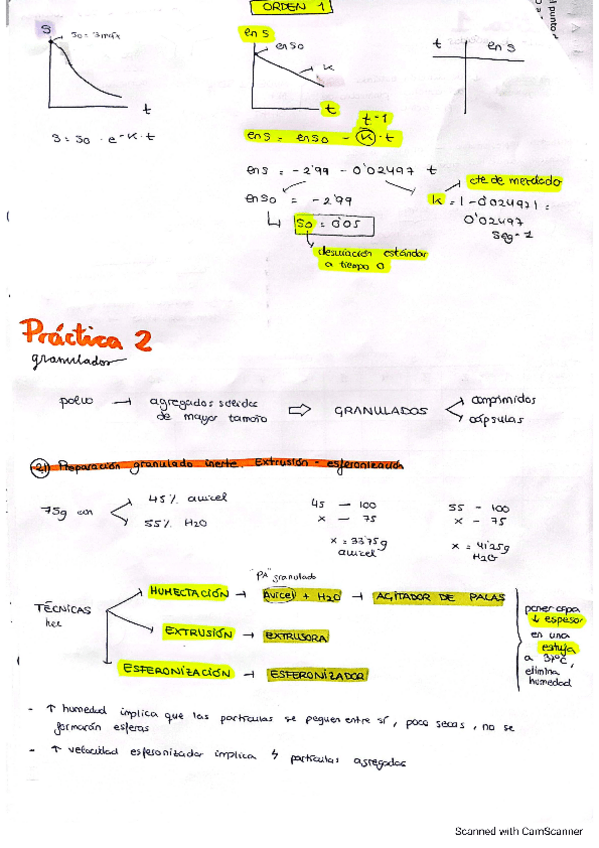 ORDEN 1
S
So = S máx
t
S = So · e^-K·t
en S
en So
K
t
t-1
en S = en So - K · t
en S = -2'99 - 0'02497 t
en So = -2'99
So = 0'05
desviación estándar
a tiempo 0
cte de mezclado
K = |-0'02497| =
0'02497
seg-1
t en S
l punto
Práctica 2
granulador
polvo → agregados sólidos
de mayor tamaño
⇨ GRANULADOS
comprimidos
cápsulas
2.1) Preparación granulado inerte. Extrusión - esferonización
75g con
45% avicel
55% H2O
45 — 100
x — 75
x = 33'75g
avicel
55 - 100
x - 75
x = 41'25g
H2O
TÉCNICAS
"PA" granulado
HUMECTACIÓN → Avicel + H2O → AGITADOR DE PALAS
EXTRUSIÓN → EXTRUSORA
ESFERONIZACIÓN → ESFERONIZADOR
poner capa
↓ espesor
en una
estufa
a 37ºC,
elimina
humedad
- ↑ humedad implica que las partículas se peguen entre sí, poco secas, no se
formarán esferas
- ↑ velocidad esferonizador implica ↳ partículas agregadas
Scanned with CamScanner